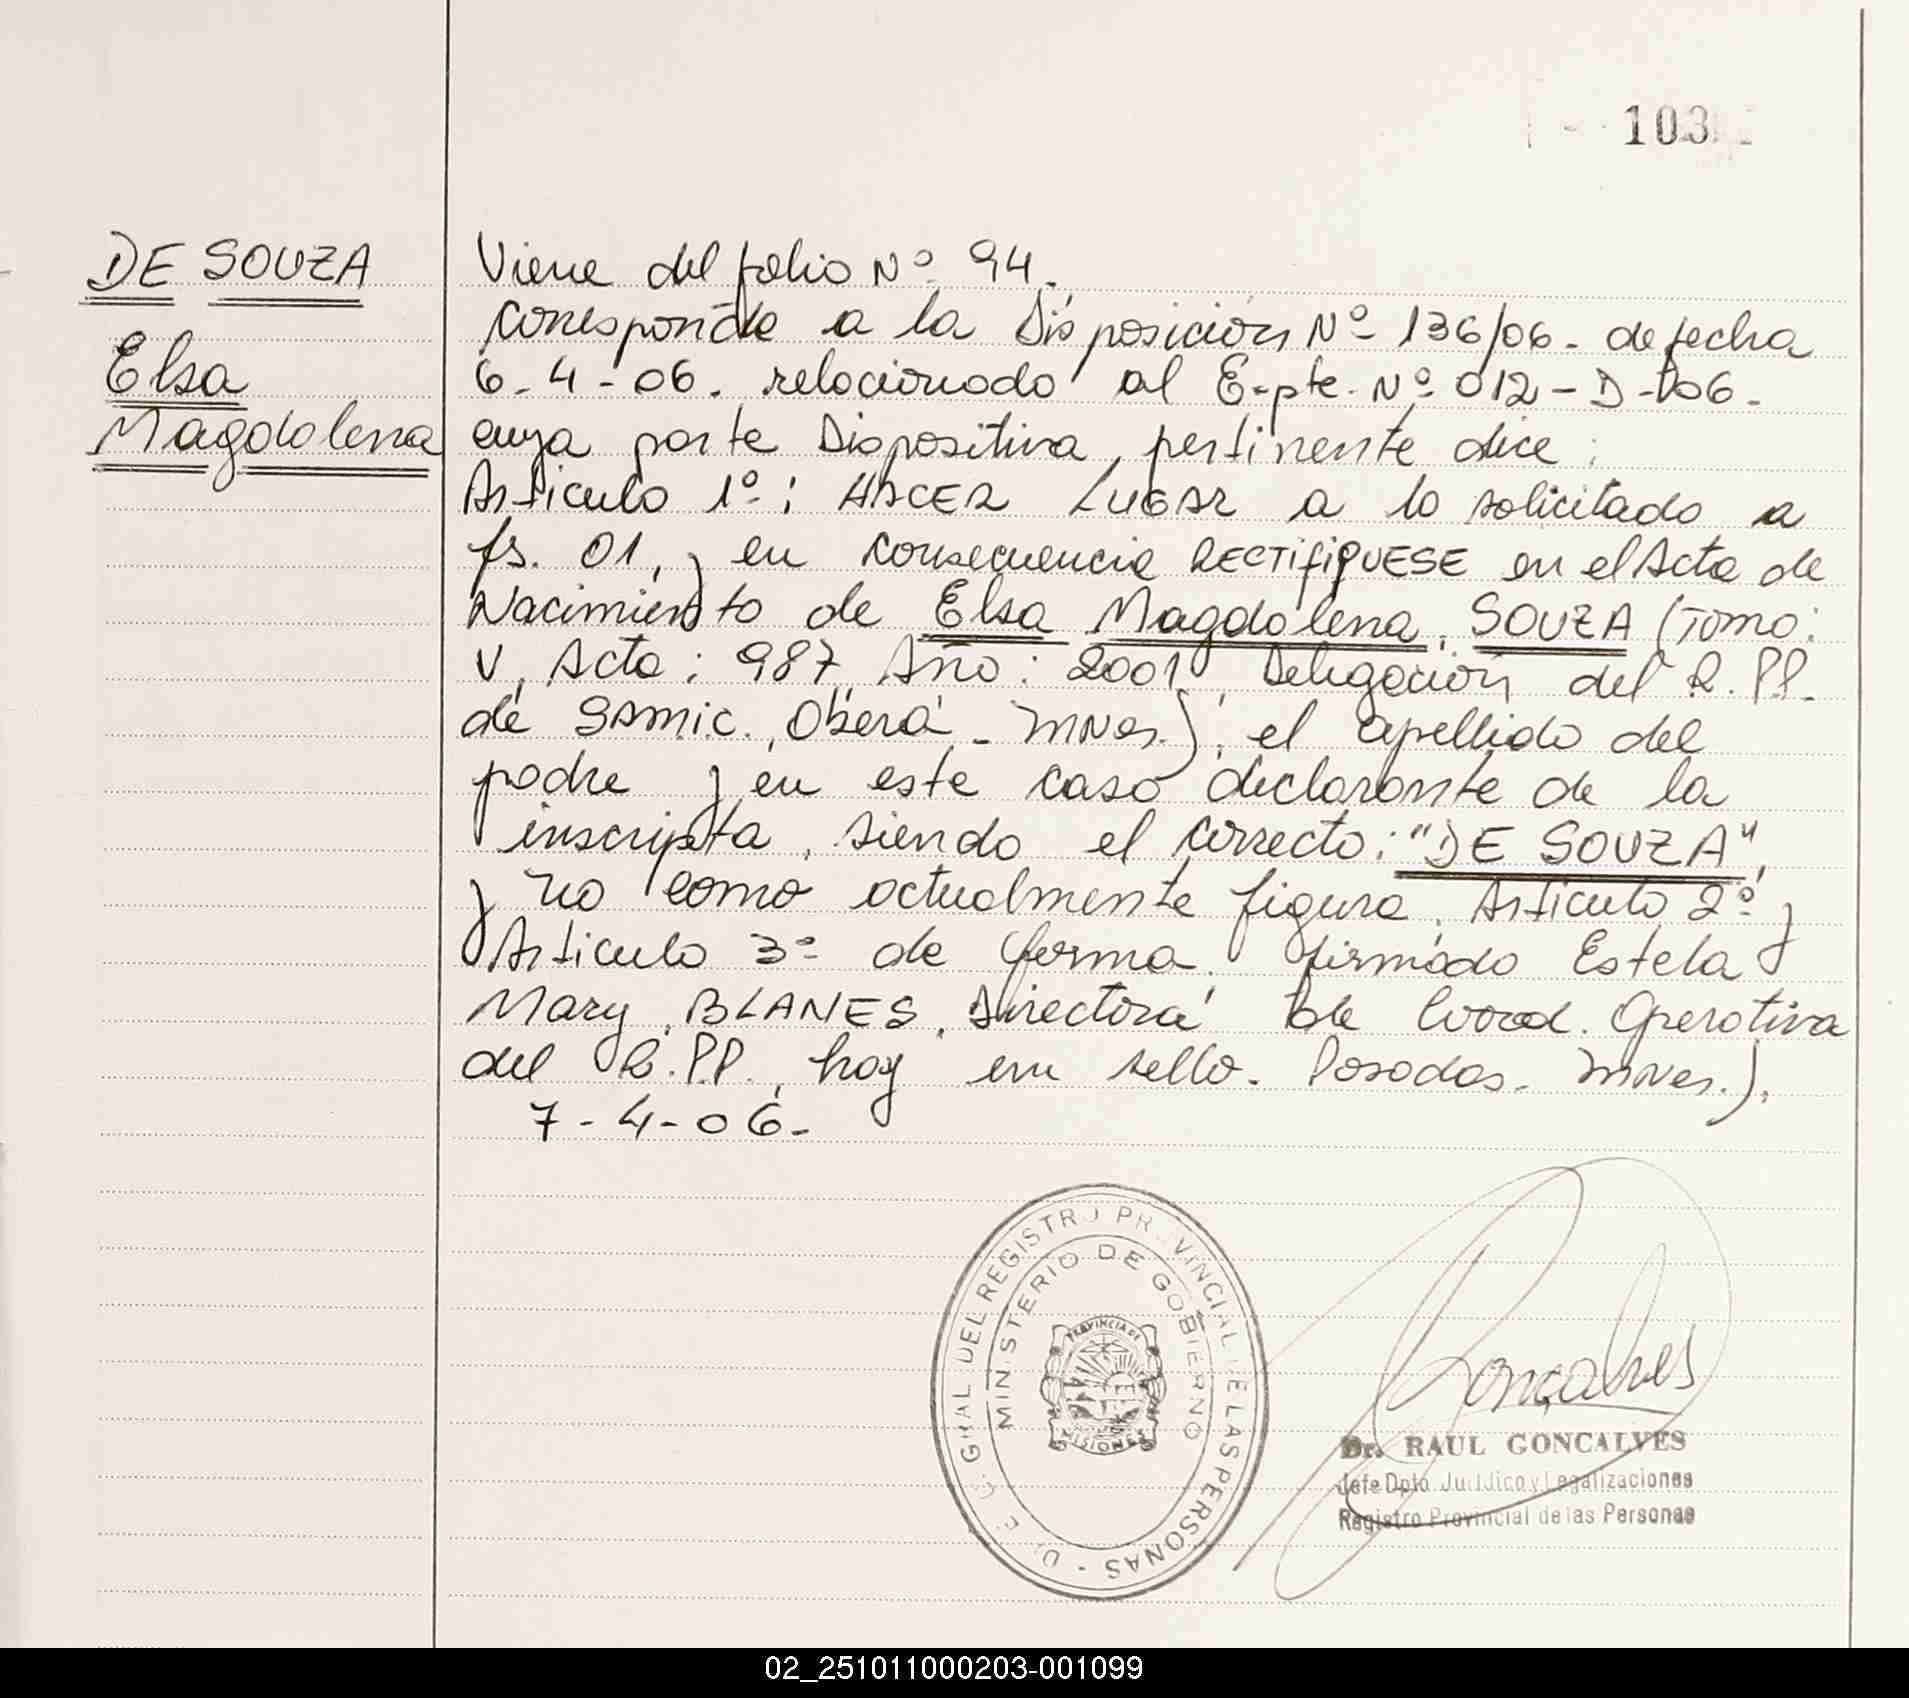 103
DE SOUZA
Elsa
Magdalena
Viene del folio Nº 94.
Corresponde a la Disposición Nº 136/06. de fecha
6-4-06. relacionado al Expte. Nº 012-D-06.
cuya parte Dispositiva pertinente dice:
Artículo 1º: HACER LUGAR a lo solicitado a
fs. 01, y en consecuencia RECTIFIQUESE en el Acta de
Nacimiento de Elsa Magdalena SOUZA (Tomo:
V, Acta: 987, Año: 2001, Delegación del R.P.P.
de SAMIC., Oberá - Mnes.), el apellido del
padre y en este caso declarante de la
inscripta, siendo el correcto: "DE SOUZA",
y no como actualmente figura. Artículo 2º y
Artículo 3º de forma. firmado Estela
Mary BLANES, Directora de Coord. Operativa
del R.P.P., hay un sello. Posadas. Mnes.).
7-4-06.
DIREC. GRAL DEL REGISTRO PROVINCIAL DE LAS PERSONAS -
MINISTERIO DE GOBIERNO
PROVINCIA DE
MISIONES
Gonçalves
Dr. RAUL GONCALVES
Jefe Dpto Jurídico y Legalizaciones
Registro Provincial de las Personas
02_251011000203-001099